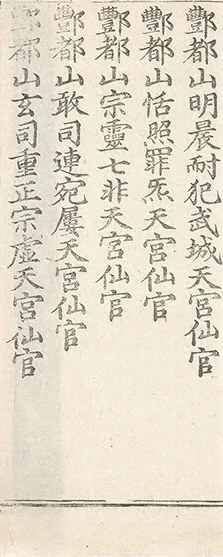 酆都山明晨耐犯武城天宮仙官
酆都山恬照罪炁天宮仙官
酆都山宗靈七非天宮仙官
酆都山敢司連宛屢天宮仙官
酆都山玄司重正宗虛天宮仙官